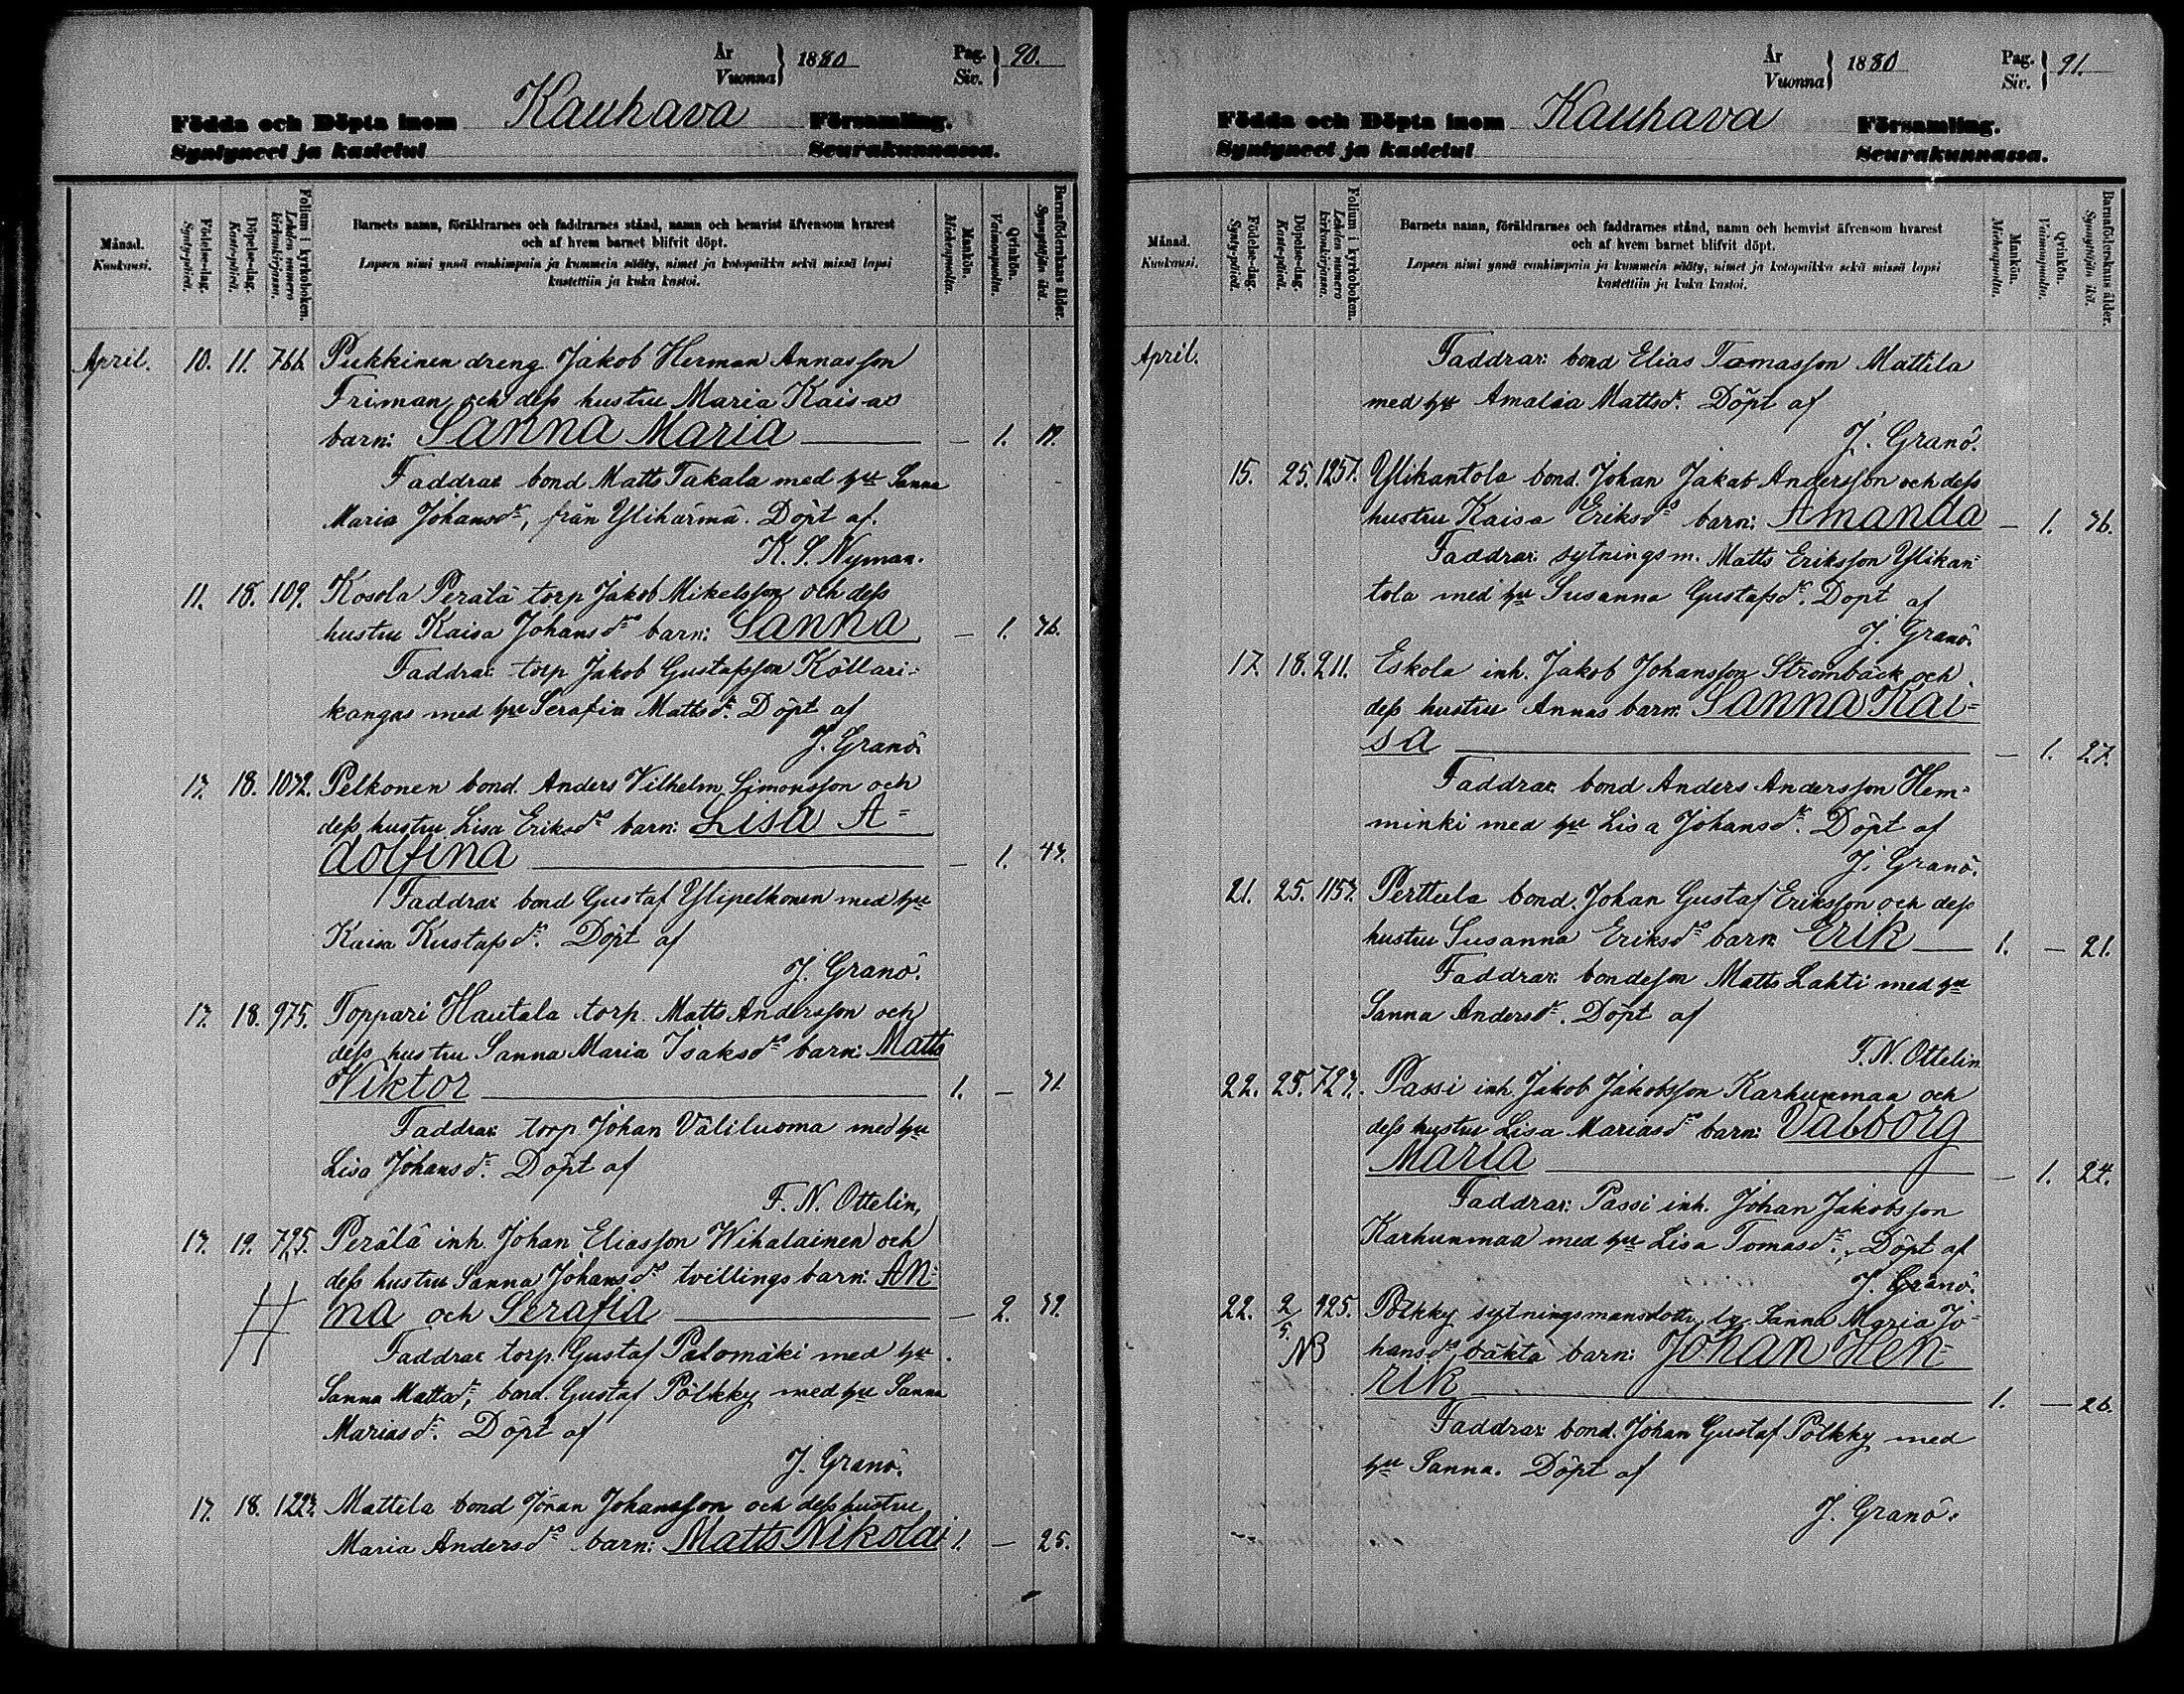 År
Vuonna } 1880
Pag.
Siv. } 90.
Födda och Döpta inom Kauhava Församling.
Syntyneet ja kastetut Seurakunnassa.
Månad.
Kuukausi.
Födelse-dag.
Synty-päivä.
Döpelse-dag.
Kaste-päivä.
Folium i kyrkoboken.
Lehden numero kirkonkirjassa.
Barnets namn, föräldrarnes och faddrarnes stånd, namn och hemvist äfvensom hvarest
och af hvem barnet blifvit döpt.
Lapsen nimi ynnä vanhimpain ja kummein sääty, nimet ja kotopaikka sekä missä lapsi
kastettiin ja kuka kastoi.
Mankön.
Miehenpuolta.
Qvinkön.
Vaimonpuolta.
Barnaföderskans ålder.
Synnyttäjän ikä.
April. 10. 11. 766. Pukkinen dreng Jakob Herman Annasson
Friman och dess hustru Maria Kaisas
barn: Sanna Maria — 1. 19.
Faddrar: bond Matts Takala med hu Sanna
Maria Johansdr, från Ylihärmä. Döpt af.
K. S. Nyman.
11. 18. 109. Kosola Perälä torp Jakob Mikelsson och dess
hustru Kaisa Johansds barn: Sanna — 1. 36.
Faddrar: torp Jakob Gustafsson Köllari-
kangas med hu Serafia Mattsdr. Döpt af
J. Granö.
17. 18. 1072. Pelkonen bond. Anders Vilhelm Simonsson och
dess hustru Lisa Eriksds barn: Lisa A-
dolfina — 1. 43.
Faddrar bond Gustaf Ylipelkonen med hu
Kaisa Kustafsdr. Döpt af
J. Granö.
17. 18. 975. Toppari Hautala torp. Matts Andersson och
dess hustru Sanna Maria Isaksds barn: Matts
Viktor 1. — 31.
Faddrar: torp Johan Väliluoma med hu
Lisa Johansdr. Döpt af
F. N. Ottelin.
17. 19. 725. Perälä inh. Johan Eliasson Wihalainen och
dess hustru Sanna Johansds tvillingsbarn: An-
na och Serafia — 2. 39.
Faddrar torp. Gustaf Palomäki med hu
Sanna Mattsdr, bond. Gustaf Pölkky med hu Sanna
Mariasdr. Döpt af
J. Granö.
17. 18. 1223. Mattila bond Jöran Johansson och dess hustru
Maria Andersds barn: Matts Nikolai 1. — 25.
År
Vuonna } 1880
Pag.
Siv. } 91.
Födda och Döpta inom Kauhava Församling.
Syntyneet ja kastetut Seurakunnassa.
Månad.
Kuukausi.
Födelse-dag.
Synty-päivä.
Döpelse-dag.
Kaste-päivä.
Folium i kyrkoboken.
Lehden numero kirkonkirjassa.
Barnets namn, föräldrarnes och faddrarnes stånd, namn och hemvist äfvensom hvarest
och af hvem barnet blifvit döpt.
Lapsen nimi ynnä vanhimpain ja kummein sääty, nimet ja kotopaikka sekä missä lapsi
kastettiin ja kuka kastoi.
Mankön.
Miehenpuolta.
Qvinkön.
Vaimonpuolta.
Barnaföderskans ålder.
Synnyttäjän ikä.
April. Faddrar: bond Elias Tomasson Mattila
med hu Amalia Mattsdr. Döpt af
J. Granö.
15. 25. 1257. Ylikantola bond. Johan Jakob Andersson och dess
hustru Kaisa Eriksds barn: Amanda — 1. 36.
Faddrar: sytningsm. Matts Eriksson Ylikan-
tola med hu Susanna Gustafsdr. Döpt af
J. Granö.
17. 18. 211. Eskola inh. Jakob Johansson Strombäck och
dess hustru Annas barn: Sanna Kai-
sa — 1. 27.
Faddrar: bond Anders Andersson Hem-
minki med hu Lisa Johansdr. Döpt af
J. Granö.
21. 25. 1153. Perttula bond. Johan Gustaf Eriksson och dess
hustru Susanna Eriksds barn: Erik 1. — 21.
Faddrar: bondeson Matts Lahti med hu
Sanna Andersdr. Döpt af
F. N. Ottelin
22. 25. 723. Passi inh. Jakob Jakobsson Karhunmaa och
dess hustru Lisa Mariasds barn: Valborg
Maria — 1. 24.
Faddrar: Passi inh. Johan Jakobsson
Karhunmaa med hu Lisa Tomasdr. Döpt af
J. Granö.
22. 2/5. 425. Pölkky sytningsmansdottr lg Sanna Maria Jo-
NB hansds oäkta barn: Johan Hen-
rik 1. — 26.
Faddrar: bond. Johan Gustaf Pölkky med
hu Sanna. Döpt af
J. Granö.